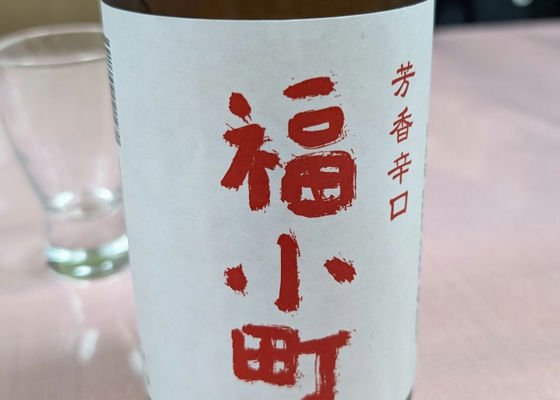 芳香辛口
福小町